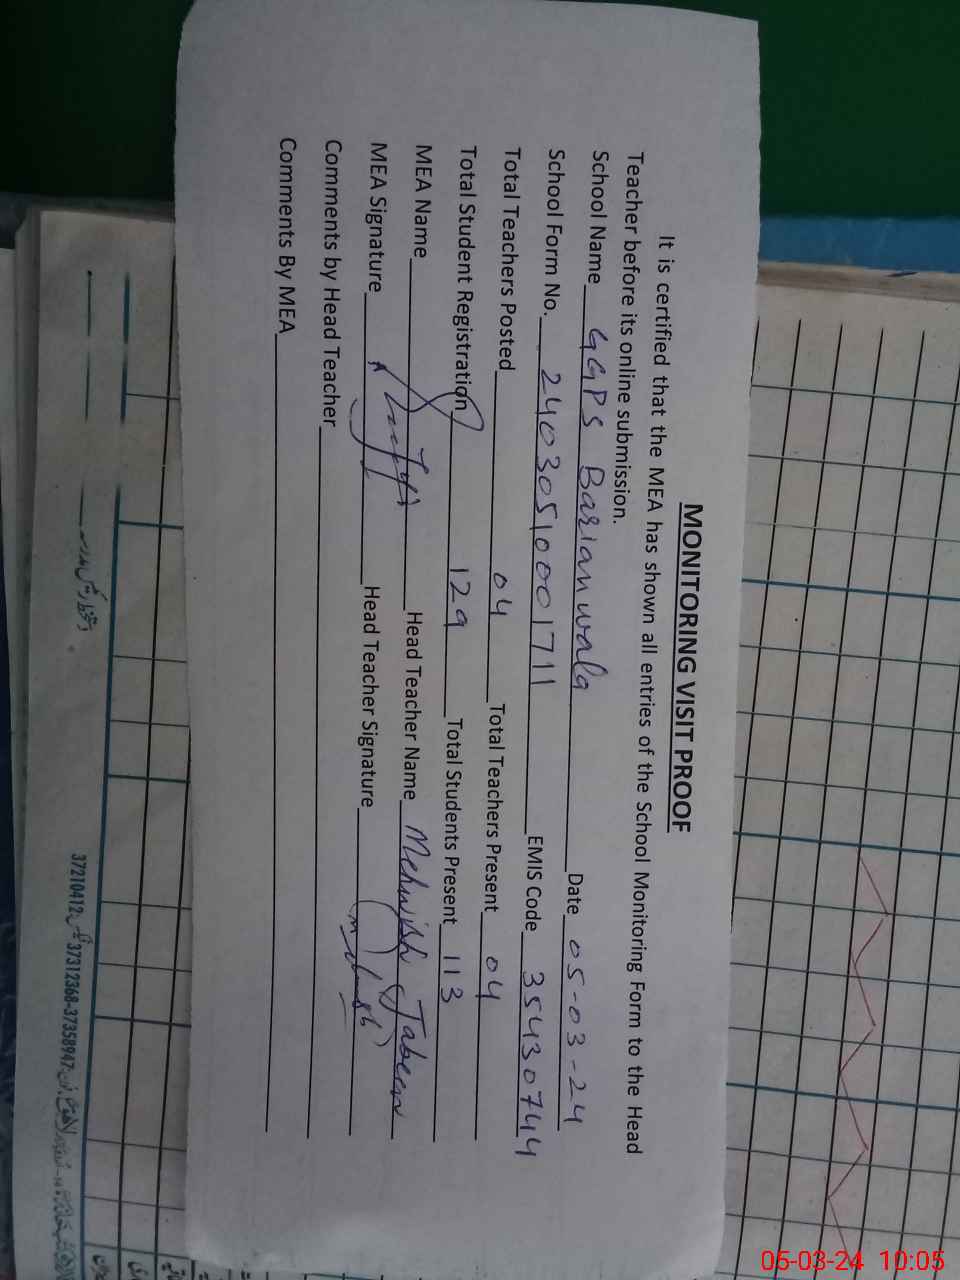 MONITORING VISIT PROOF
It is certified that the MEA has shown all entries of the School Monitoring Form to the Head
Teacher before its online submission.
School Name GGPS Barianwala Date 05-03-24
School Form No. 24030510001711 EMIS Code 35430744
Total Teachers Posted 04 Total Teachers Present 04
Total Student Registration 129 Total Students Present 113
MEA Name Head Teacher Name Mehwish Jabeen
MEA Signature Head Teacher Signature
Comments by Head Teacher
Comments By MEA
37210412 37312368-37358947
05-03-24 10:05